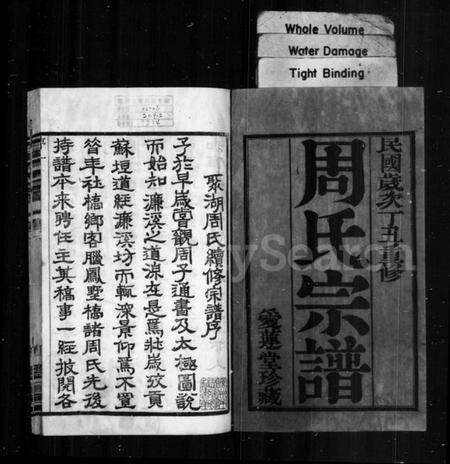 Whole Volume
Water Damage
Tight Binding
民國歲次丁丑重修
周氏宗譜
愛蓮堂珍藏
聚湖周氏續修宗譜序
予於早歲嘗觀周子通書及太極圖說
而始知濂溪之道源在是焉壯歲攷貢
蘇垣道經濂溪坊而輒深景仰焉不置
昝年社橋鄉客腦鳳墅橋諸周氏先後
持譜本來聘任主其稿事一經披閱各